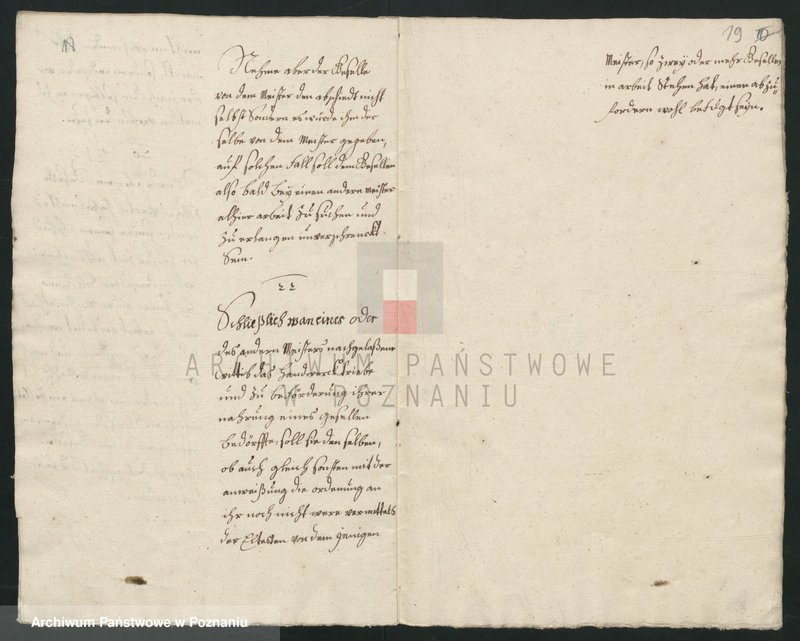 Nehme aber der Geselle
von dem Meister den abschiedt nicht
selbst Sondern es würde ihm der
selbe von dem Meister gegeben,
auf solchen Fall soll dem Gesellen
also bald bey einen andern Meister
alhier arbeit zu suchen und
zu erlangen unverschrenckt
Sein.
22
Schließlich wan eines oder
des andern Meisters nachgelaßene
Wittib das Handwerck triebe
und zu beförderung ihrer
nahrung eines Gesellen
bedörffte, soll sie den selben,
ob auch gleich sonsten mit der
anweißung die ordenung an
ihr noch nicht were vermittels
der Eltesten von dem jenigen
19
Meister, so zwey oder mehr Gesellen
in arbeit Stehen hat, einen abzu
fordern wohl befugt seyn.
ARCHIWUM PAŃSTWOWE
W POZNANIU
Archiwum Państwowe w Poznaniu